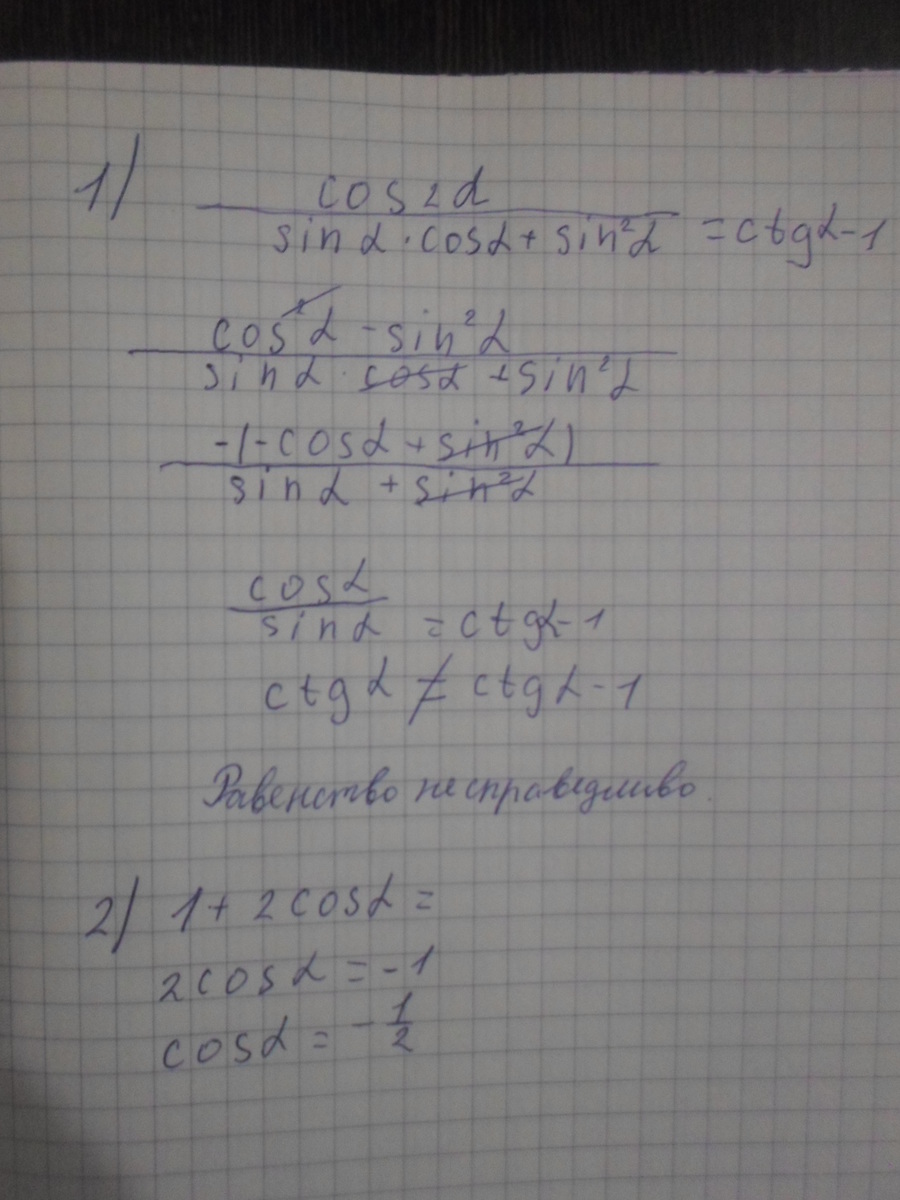 1) cos2α
sinα·cosα + sin²α = ctgα-1
cos²α - sin²α
sinα · cosα + sin²α
-(-cosα + sin²α)
sinα + sin²α
cosα
sinα = ctgα-1
ctgα ≠ ctgα-1
Равенство несправедливо.
2) 1 + 2cosα =
2cosα = -1
cosα = -1/2